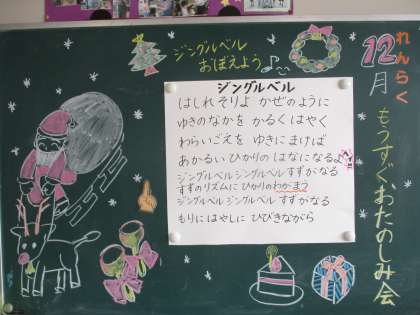 れんらく
12月 もうすぐおたのしみ会
ジングルベル
おぼえよう♪
ジングルベル
はしれそりよ かぜのように
ゆきのなかを かるく はやく
わらいごえを ゆきに まけば
あかるい ひかりの はなになるよ
ジングルベル ジングルベル すずがなる
すずのリズムに ひかりのわがまう
ジングルベル ジングルベル すずがなる
もりに はやしに ひびきながら